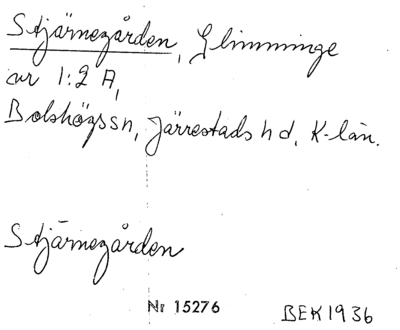 Stjärnegården, Glimminge
nr 1:2 A,
Bolshögssn, Järrestads hd, K-län.
Stjärnegården
Nr 15276
BEK 1936